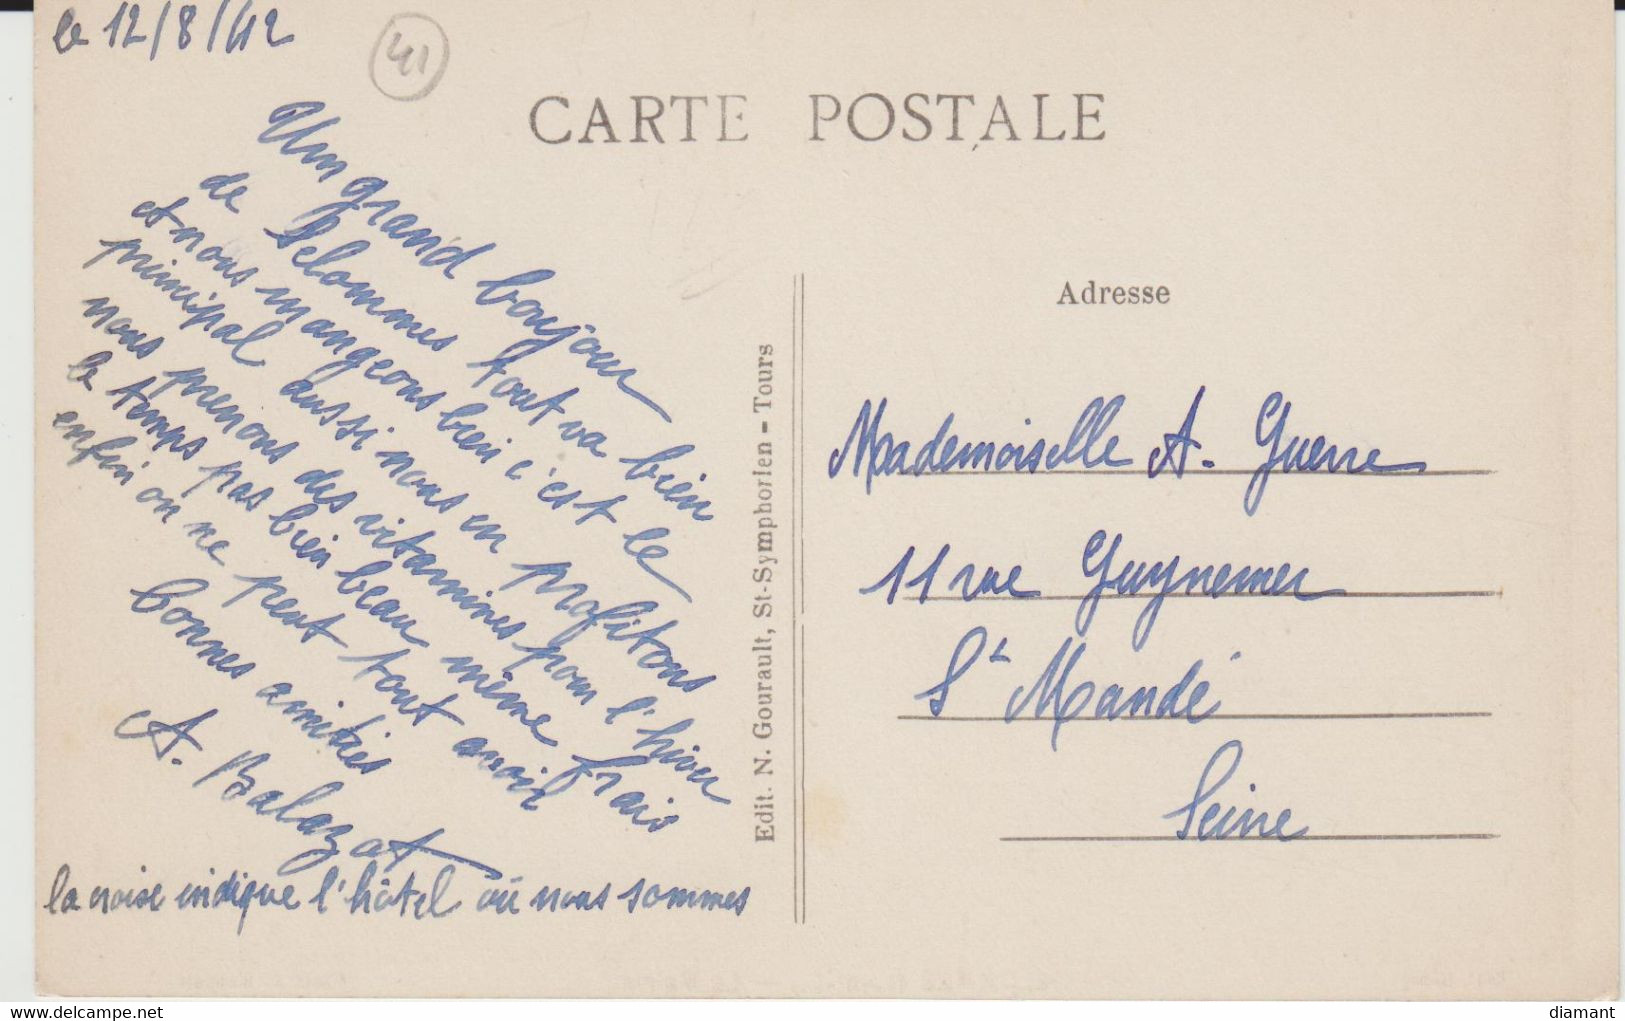 le 12/8/42
41
CARTE POSTALE
Un grand bonjour
de Selommes tout va bien
et nous mangeons bien c'est le
principal aussi nous en profitons
nous prenons des vitamines pour l'hiver
le temps pas bien beau même frais
enfin on ne peut tout avoir
bonnes amitiés
A. Balazat
la croise indique l'hôtel où nous sommes
Edit. N. Gourault, St-Symphorien - Tours
Adresse
Mademoiselle A. Guerre
11 rue Guynemer
St Mandé
Seine
delcampe.net
diamant